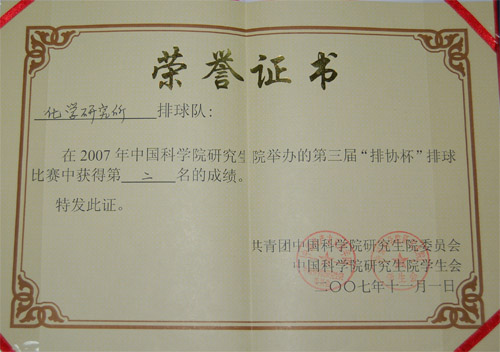 荣誉证书
化学研究所 排球队：
在2007年中国科学院研究生院举办的第三届“排协杯”排球
比赛中获得第 二 名的成绩。
特发此证。
共青团中国科学院研究生院委员会
中国科学院研究生院学生会
二〇〇七年十二月一日